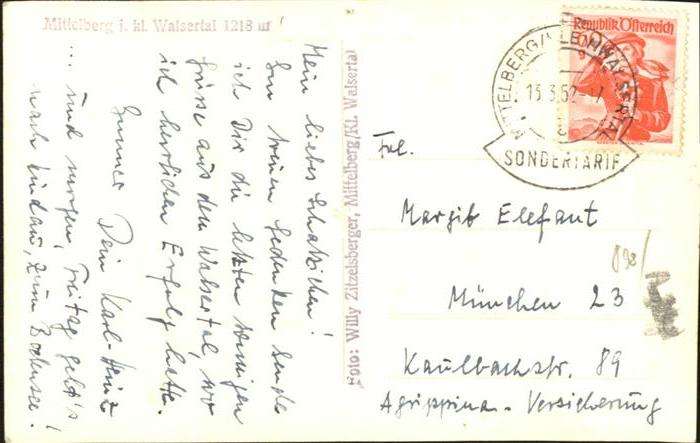 Mittelberg i. kl. Walsertal 1218 m
Mein liebes Schätzchen!
In treuem Gedenken sende
ich Dir die letzten sonnigen
Grüße aus dem Walsertal, wo
ich herrlichen Erfolg hatte.
Immer Dein Karl-Heinz
... und morgen, Freitag geht's
nach Lindau, zum Bodensee!
Foto: Willy Zitzelsberger, Mittelberg/Kl. Walsertal
Republik Österreich
MITTELBERG/KLEINWALSERTAL
13.3.52
SONDERTARIF
Frl.
Margit Elefant
München 23
Kaulbachstr. 89
Agrippina-Versicherung